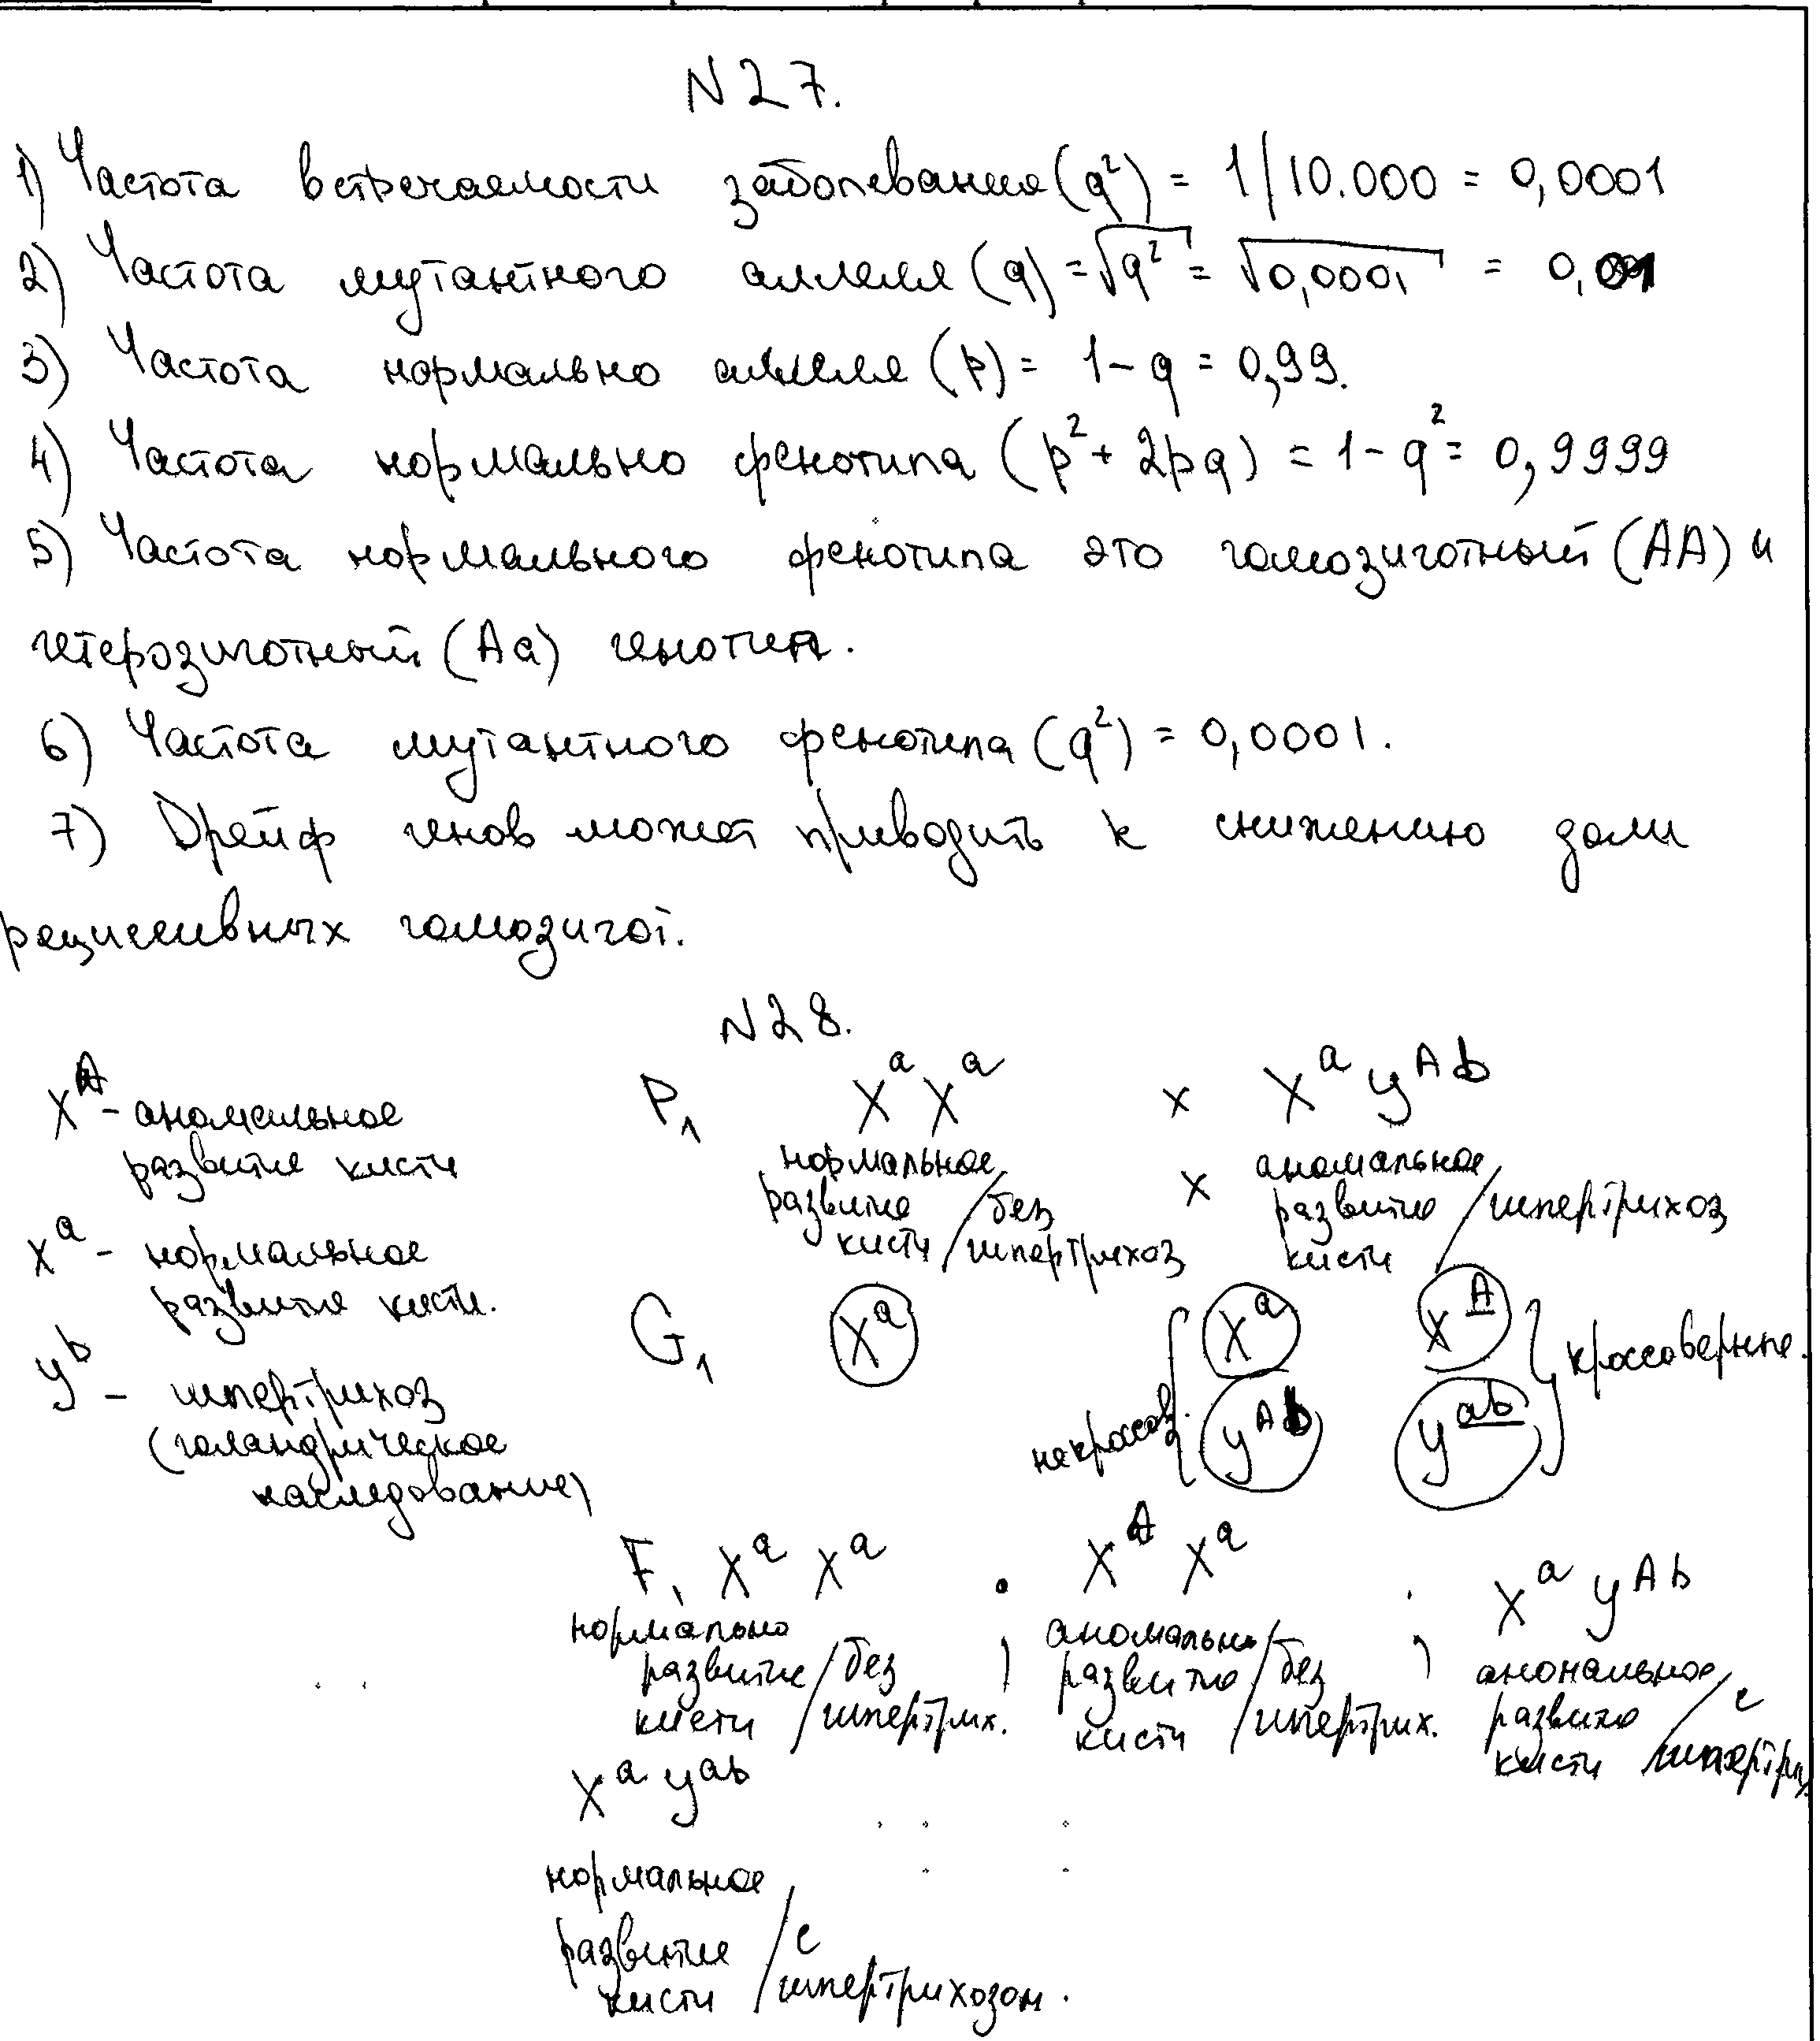 N27.
1) Частота встречаемости заболевания (q²) = 1/10.000 = 0,0001
2) Частота мутантного аллеля (q) = √q² = √0,0001 = 0,01
3) Частота нормально аллеля (p) = 1-q = 0,99.
4) Частота нормально фенотипа (p² + 2pq) = 1-q² = 0,9999
5) Частота нормального фенотипа это гомозиготный (AA) и
гетерозиготный (Aa) генотип.
6) Частота мутантного фенотипа (q²) = 0,0001.
7) Дрейф генов может приводить к снижению доли
рецессивных гомозигот.
N28.
Xᴬ - аномальное
развитие кисти
Xᵃ - нормальное
развитие кисти.
yᵇ - гипертрихоз
(голандрическое
наследование)
P₁ Xᵃ Xᵃ x Xᵃ yᴬᵇ
нормальное развитие кисти / без гипертрихоз x аномальное развитие кисти / гипертрихоз
G₁ Xᵃ некроссов. Xᵃ yᴬᵇ Xᴬ yᵃᵇ кроссоверные.
F₁ Xᵃ Xᵃ
нормально
развитие / без
кисти / гипертрих.
;
Xᴬ Xᵃ
аномально
развитие / без
кисти / гипертрих.
;
Xᵃ yᴬᵇ
анональное
развитие / с
кисти / гипертрих
Xᵃ yᵃᵇ
нормальное
развитие / с
кисти / гипертрихозом.